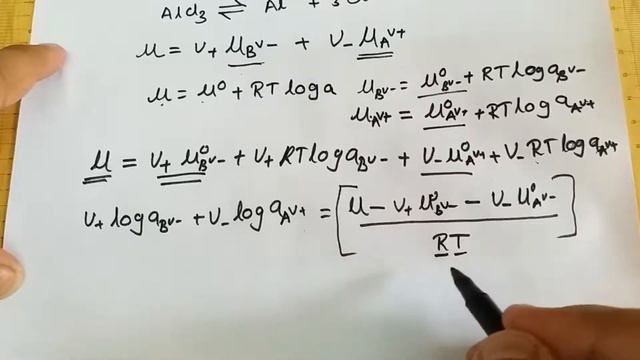 AlCl3 ⇌ Al + 3
μ = ν+ μB^ν- + ν- μA^ν+
μ = μ° + RT log a μB^ν- = μ°B^ν- + RT log aB^ν-
μA^ν+ = μ°A^ν+ + RT log aA^ν+
μ = ν+ μ°B^ν- + ν+ RT log aB^ν- + ν- μ°A^ν+ + ν- RT log aA^ν+
ν+ log aB^ν- + ν- log aA^ν+ = [μ - ν+ μ°B^ν- - ν- μ°A^ν-
RT]